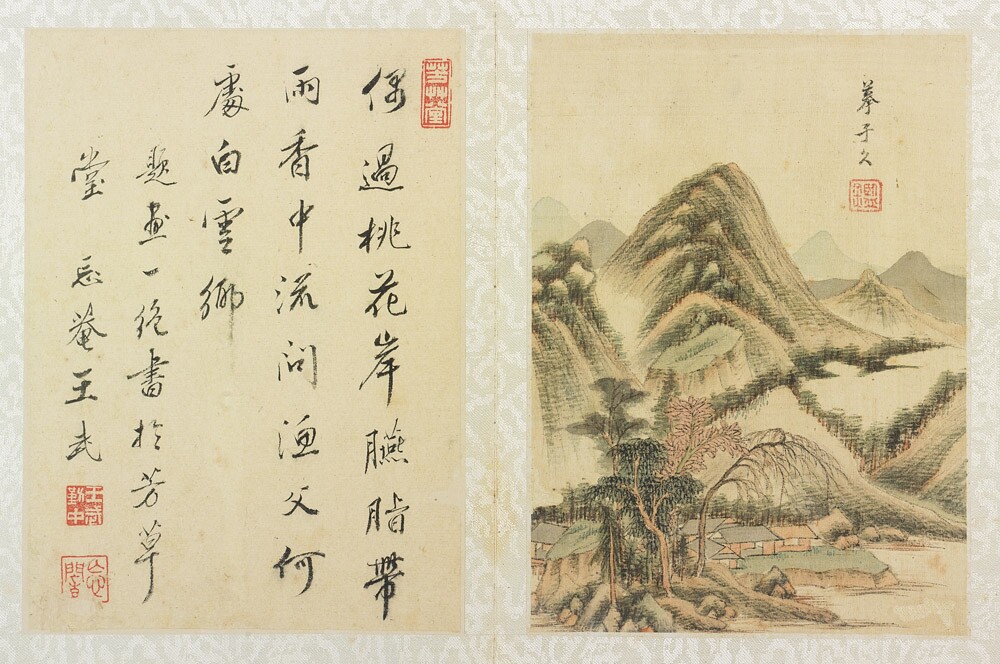 摹子久
芳草堂
偶過桃花岸臙脂帶
雨香中流問漁父何
處白雲鄉
題畫一絕書於芳草
堂 忘菴王武
王武勤中